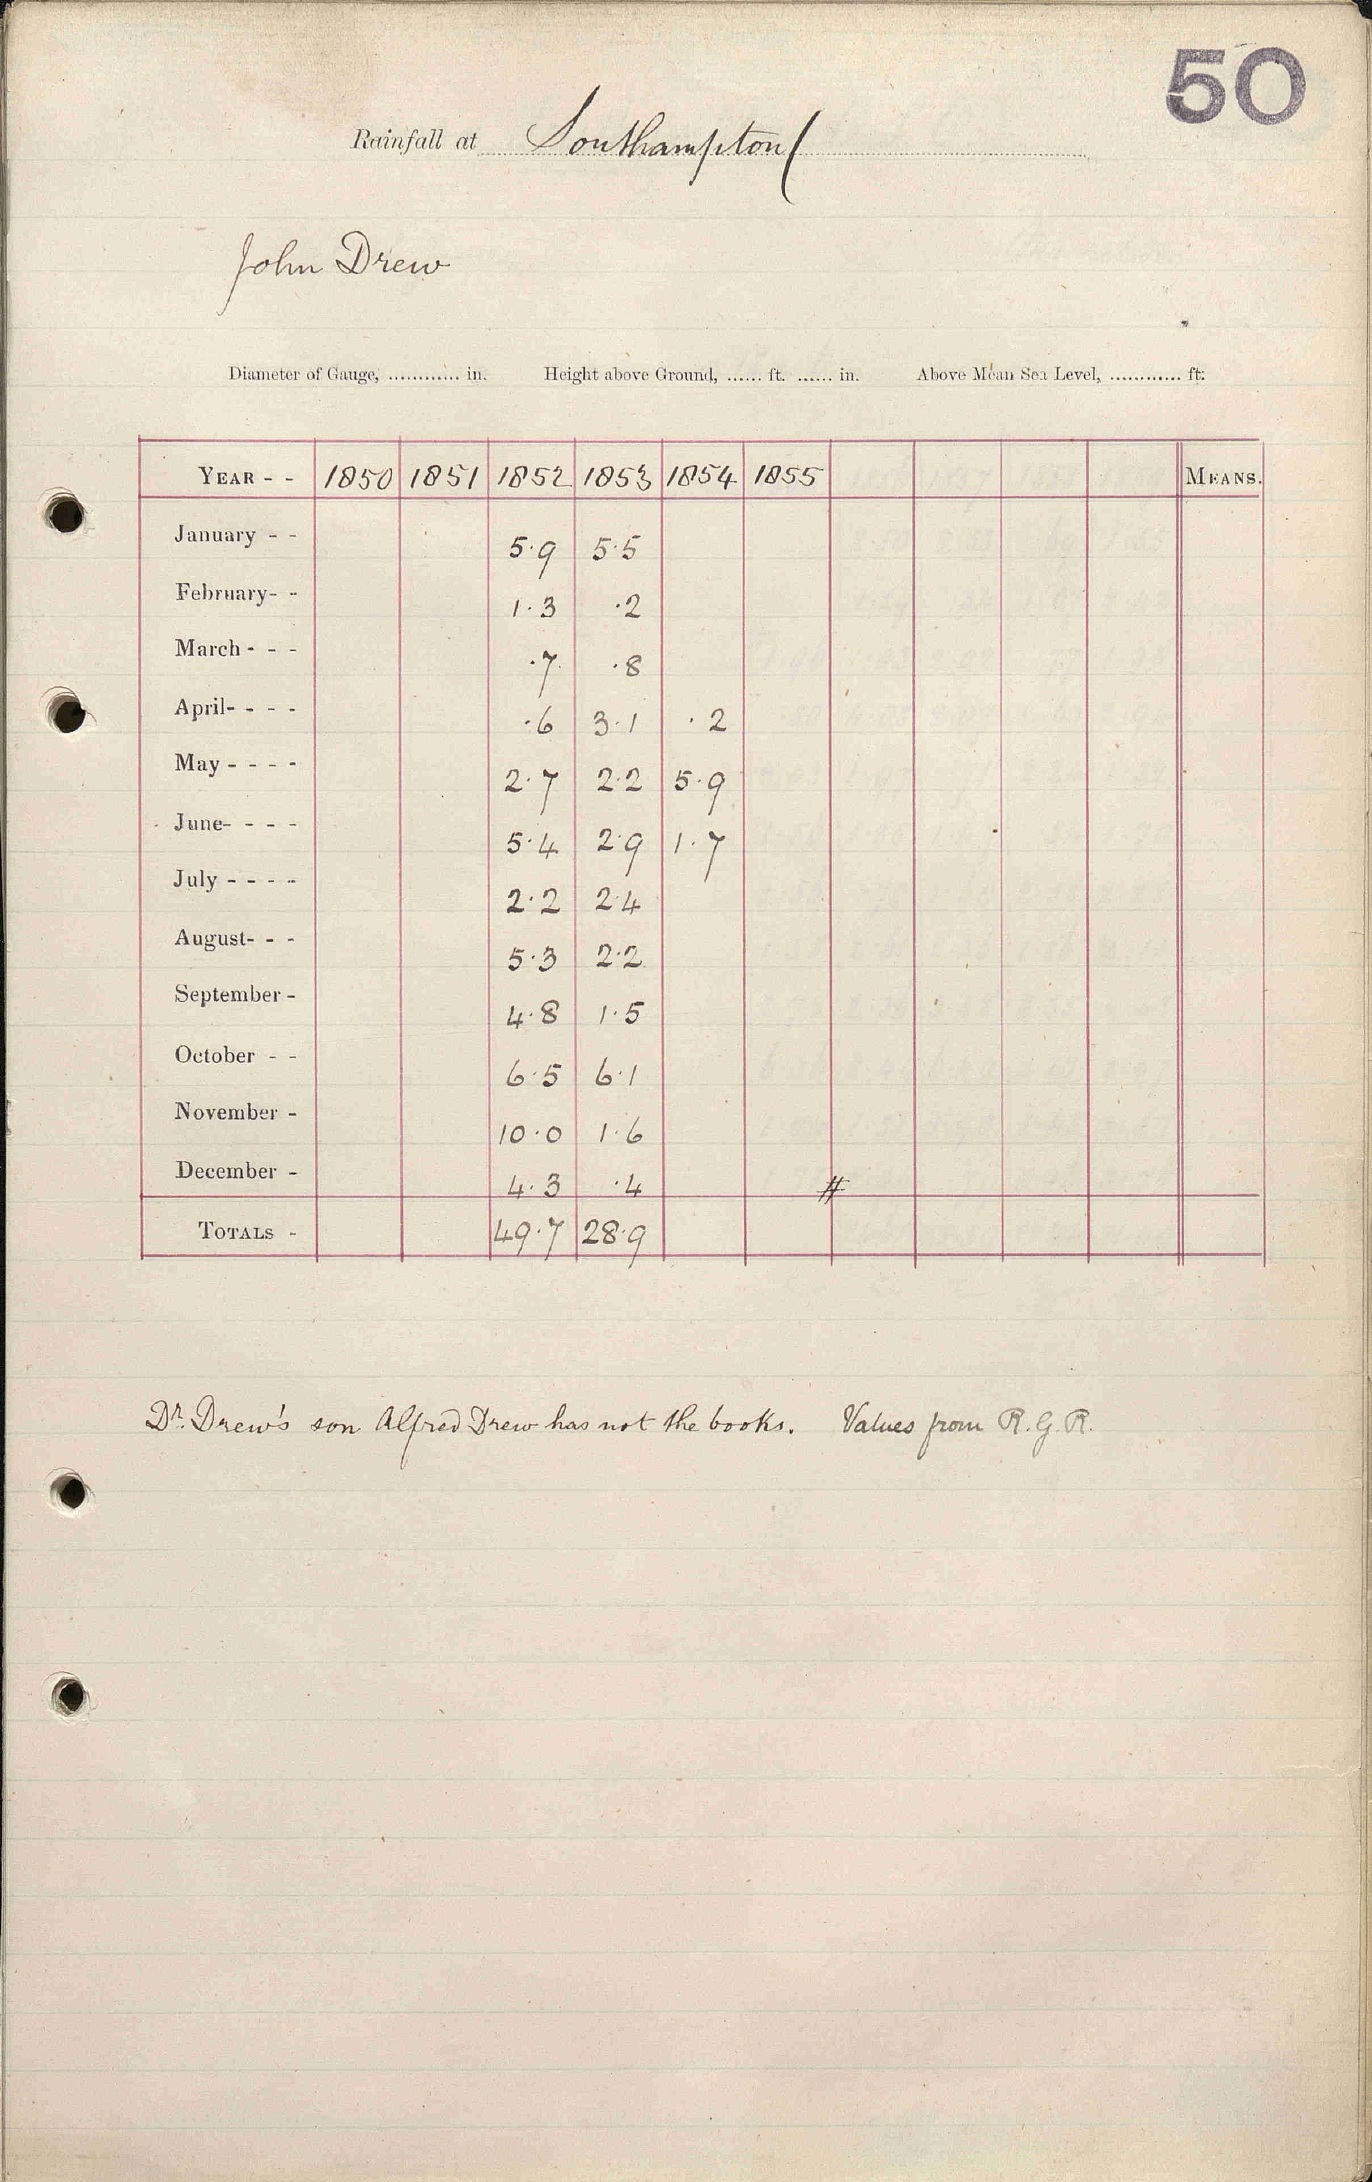 50
Rainfall at Southampton (
John Drew
Diameter of Gauge, ............ in. Height above Ground, ...... ft. ...... in. Above Mean Sea Level, ............ ft.
YEAR - - 1850 1851 1852 1853 1854 1855 MEANS.
January - - 5.9 5.5
February- - 1.3 .2
March - - - .7 .8
April- - - - .6 3.1 .2
May - - - - 2.7 2.2 5.9
June- - - - 5.4 2.9 1.7
July - - - - 2.2 2.4
August- - - 5.3 2.2
September - 4.8 1.5
October - - 6.5 6.1
November - 10.0 1.6
December - 4.3 .4 #
TOTALS - 49.7 28.9
Dr. Drew's son Alfred Drew has not the books. Values from R.G.R.